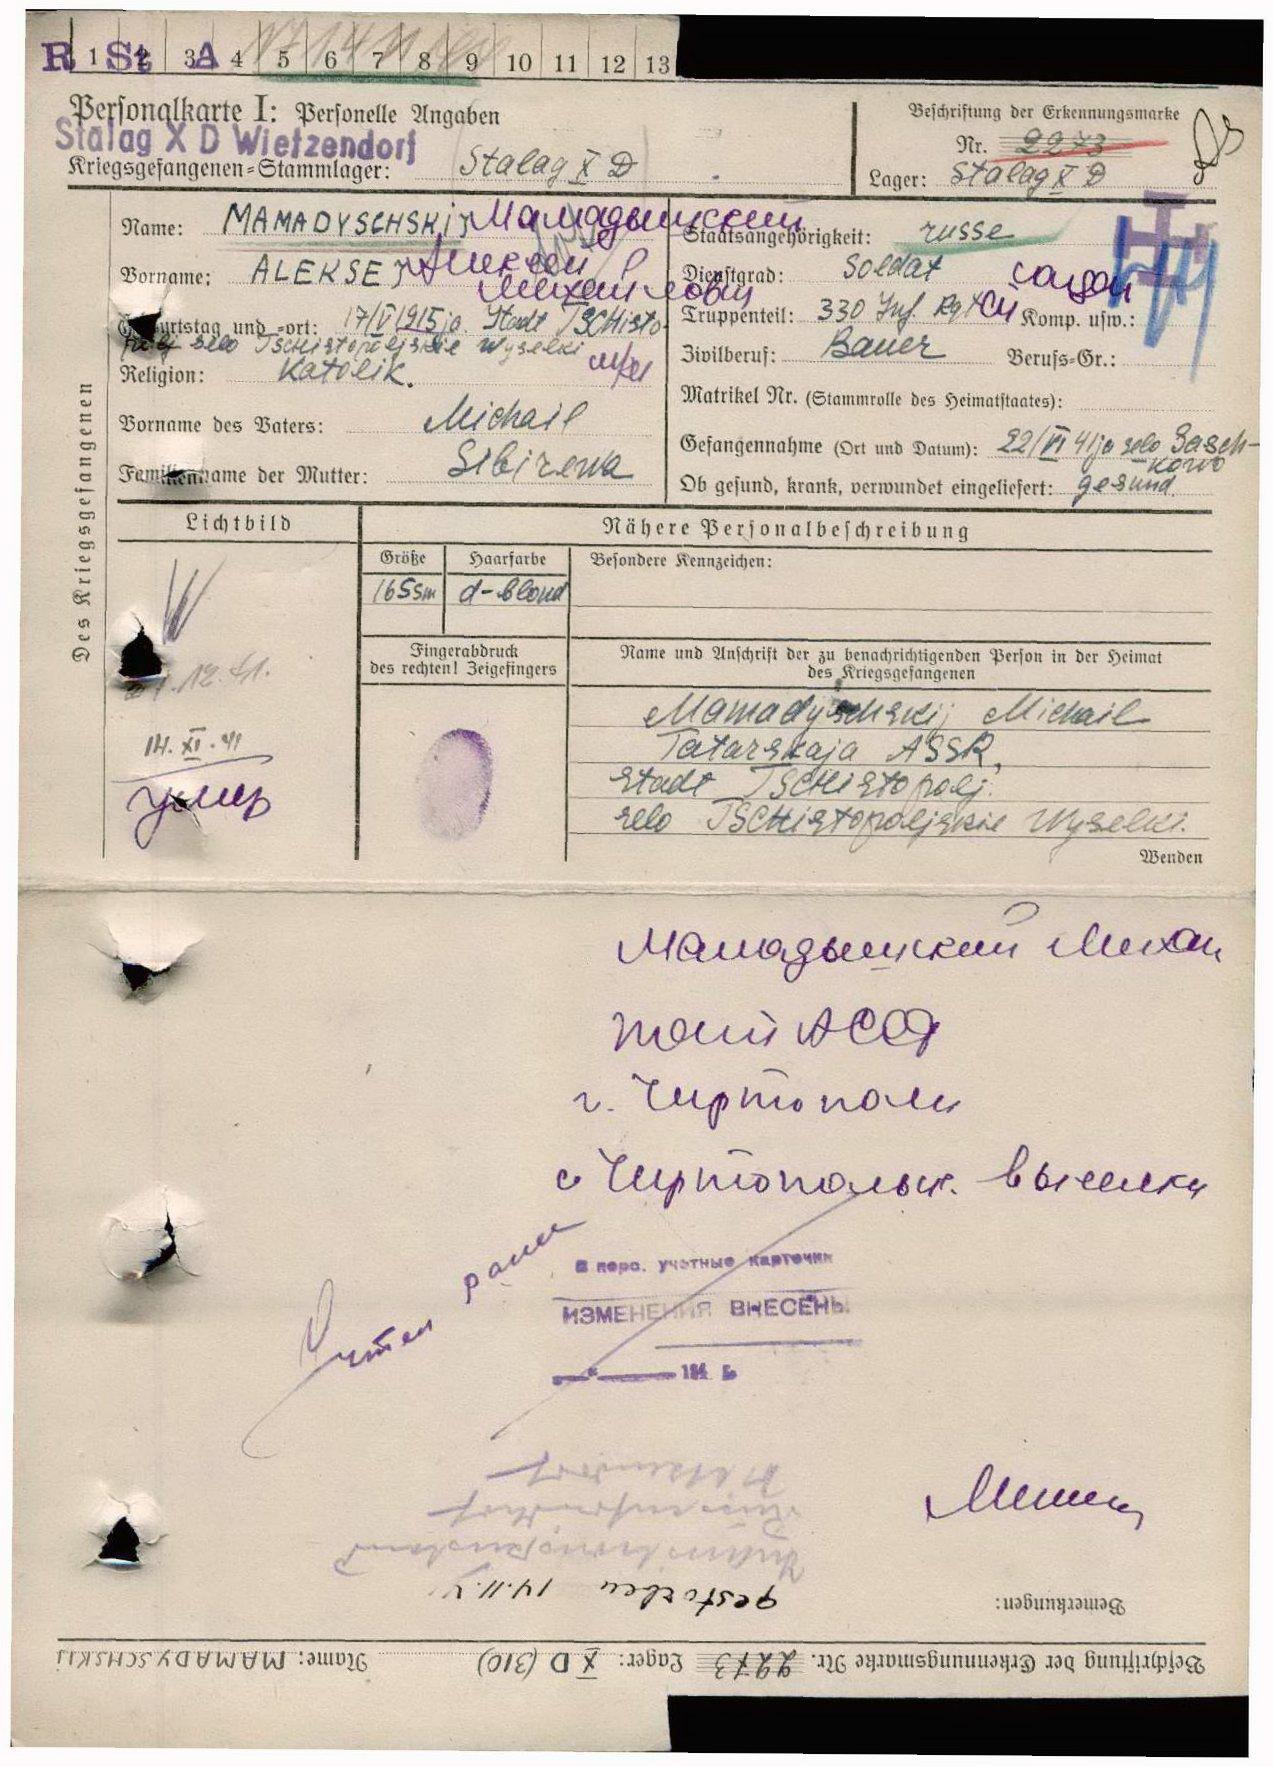 R 1 St 2 3 A 4 5 6 7 8 9 10 11 12 13
Personalkarte I: Personelle Angaben
Stalag X D Wietzendorf
Kriegsgefangenen-Stammlager: Stalag X D
Beschriftung der Erkennungsmarke
Nr. 2273
Lager: Stalag X D
Des Kriegsgefangenen
Name: MAMADYSCHSKIJ Мамадышский
Vorname: ALEKSEJ Алексей
Михайлович
Geburtstag und -ort: 17/V 1915 ja. Stadt TSCHisto-
polj selo Tschistopoljskie Wyselki
Religion: Katolik.
Vorname des Vaters: Michail
Familienname der Mutter: Sibirewa
Staatsangehörigkeit: russe
Dienstgrad: Soldat солдат
Truppenteil: 330 Inf. Rgt СП Komp. usw.:
Zivilberuf: Bauer Berufs-Gr.:
Matrikel Nr. (Stammrolle des Heimatstaates):
Gefangennahme (Ort und Datum): 22/VI 41 ja selo Sasch-
kowo
Ob gesund, krank, verwundet eingeliefert: gesund.
Lichtbild
Nähere Personalbeschreibung
Größe Haarfarbe Besondere Kennzeichen:
165 sm d-blond
Fingerabdruck
des rechten! Zeigefingers
Name und Anschrift der zu benachrichtigenden Person in der Heimat
des Kriegsgefangenen
Mamadyschskij Michail
Tatarskaja ASSR,
stadt TSCHistopolj.
selo TSCHistopoljskie Wyselki.
12.41.
14. XI. 41
умер
Wenden
Мамадышский Михаил
г. Чистополь
с Чистопольск. выселки
Учтен ранее
В перс. учетные карточки
ИЗМЕНЕНИЯ ВНЕСЕНЫ
194 г.
gestorben 14.11.41
Bemerkungen:
Beschriftung der Erkennungsmarke Nr. 2273 Lager: X D (310) Name: MAMADYSCHSKIJ